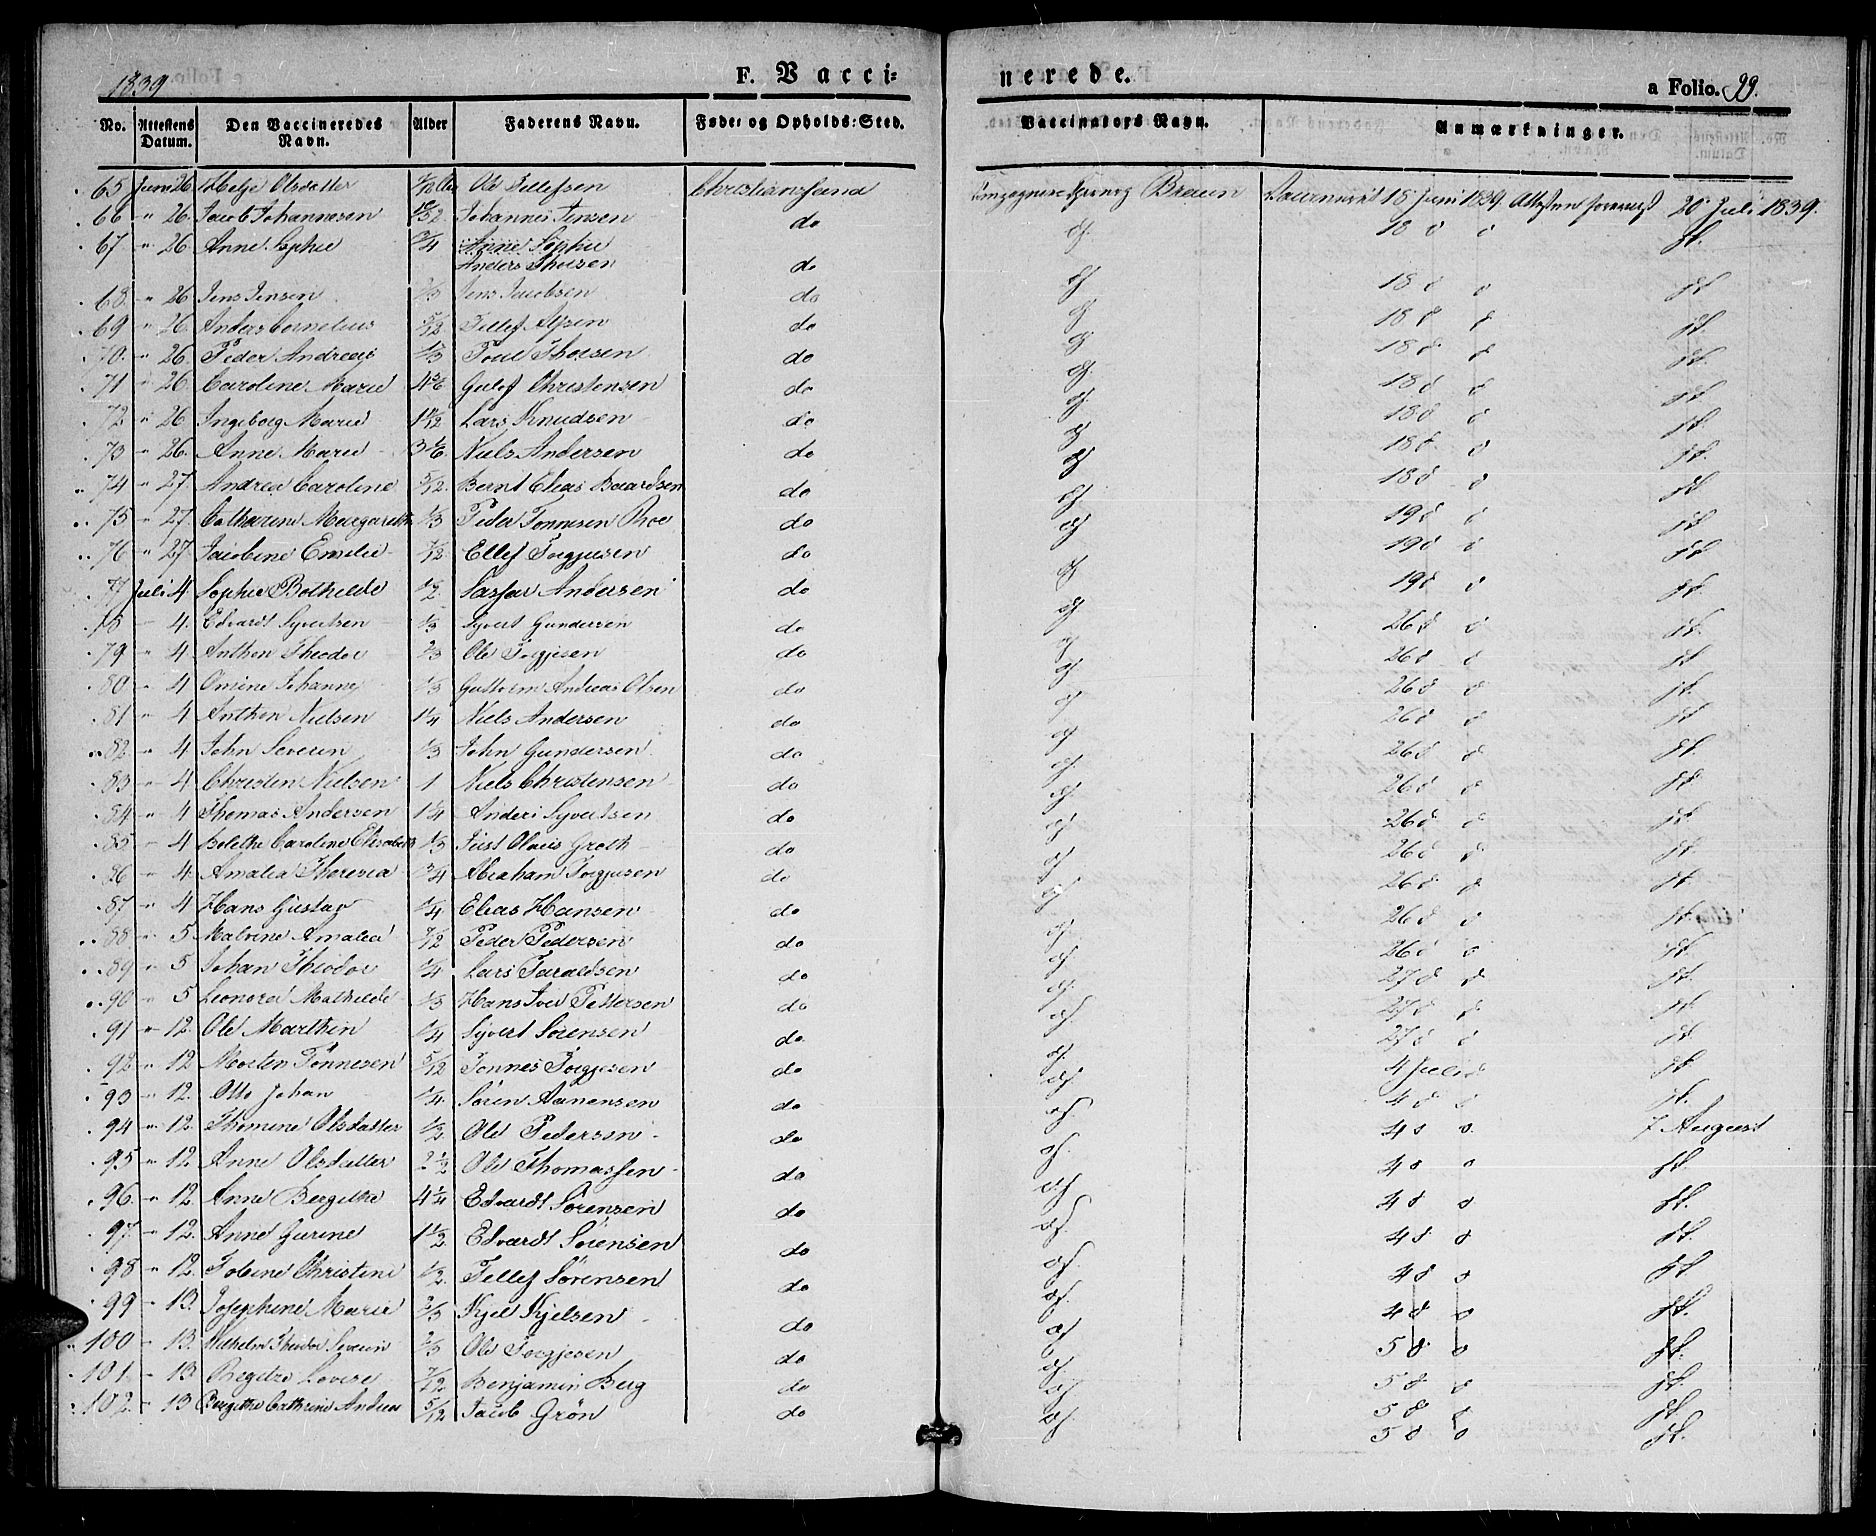 1839
F. Vacci=
nerede.
a Folio. 99.
No. Attestens Datum. Den Vaccineredes Navn. Alder Faderens Navn. Føde= og Opholds=Sted. Vaccinators Navn. Anmærkninger.
65 Juni 26 Helje Olsdatter Ole Tellefsen Christianssand Braun Vaccineret 18 Juni 1839. Attesten foreviist 20 Juli 1839.
66 " 26 Jacob Johannesen Johannes Jensen do 18 d d
67 " 26 Anne Sophie 3/4 Anne Sophie
Anders Thorsen do
68 " 26 Jens Jensen 2/3 Jens Jacobsen do 18 d d
69 " 26 Anders Cornelius 5/12 Tellef Alfsen do 18 d d
70 " 26 Peder Andreas 1/3 Poul Thorsen do 18 d d
71 " 26 Caroline Marie 4 5/6 Gulof Christensen do 18 d d
72 " 26 Ingeborg Marie Lars Knudsen do 18 d d
73 " 26 Anne Marie 3 1/6 Niels Andersen do 18 d d
74 " 27 Andrea Caroline 5/12 Bernt Elias Baardsen do 18 d d
75 " 27 Cathrine Margarethe 1/3 Peder Tønnesen Roe do 19 d d
76 " 27 Jacobine Emilie 7/12 Ellef Torgjusen do 19 d d
77 Juli 4 Sophie Bothilde 1/2 Andersen do 19 d d
78 " 4 Edvardt Syvertsen 1/3 Syvert Gundersen do 26 d d
79 " 4 Anthon Theodor 2/3 Ole Torgjesen do 26 d d
80 " 4 Omine Johanne 1/3 Guttorm Andreas Olsen do 26 d d
81 " 4 Anthon Nielsen 1 1/4 Niels Andersen do 26 d d
82 " 4 John Severin 1/3 John Gundersen do 26 d d
83 " 4 Christen Nielsen 1 Niels Christensen do 26 d d
84 " 4 Thomas Andersen 1 1/4 Anders Syvertsen do 26 d d
85 " 4 Bolethe Caroline Elisabeth 1/3 Just Olaus Groth do 26 d d
86 " 4 Amalia Theresia 3/4 Abraham Torgjusen do 26 d d
87 " 4 Hans Gustav 1/4 Elias Hansen do 26 d d
88 " 5 Malvine Amalia 7/12 Peder Pedersen do 26 d d
89 " 5 Johan Theodor 1/4 Lars Taraldsen do 27 d d
90 " 5 Leonora Mathilde 1/3 Hans Iver Pettersen do 27 d d
91 " 12 Ole Marthin 1/4 Syvert Sørensen do 27 d d
92 " 12 Morten Tønnesen 5/12 Tønnes Torgjesen do 4 Juli d
93 " 12. Otto Johan 1/4 Søren Aanensen do 4 d d
94 " 12. Thomine Olsdatter 1/2 Ole Pedersen do 4 d d 7 August
95 " 12 Anne Olsdatter 2 1/2 Ole Thomassen do 4 d d
96 " 12 Anne Bergithe 4 1/4 Edvardt Sørensen do 4 d d
97 " 12. Anne Gurine 1 1/2 Edvardt Sørensen do 4 d d
98 " 12. Tobine Christine 1/2 Tellef Sørensen do 4 d d
99 " 13. Josephine Marie 2/3 Kjel Kjelsen do 4 d d
100 " 13. Wilhelm Theodor Severin 2/3 Ole Torgjesen do 5 d d
101 " 13 Regitze Lovise 7/12 Benjamin Berg do 5 d d
102 " 13 Bergithe Cathrine Andrea 5/12 Jacob Grøn do 5 d d